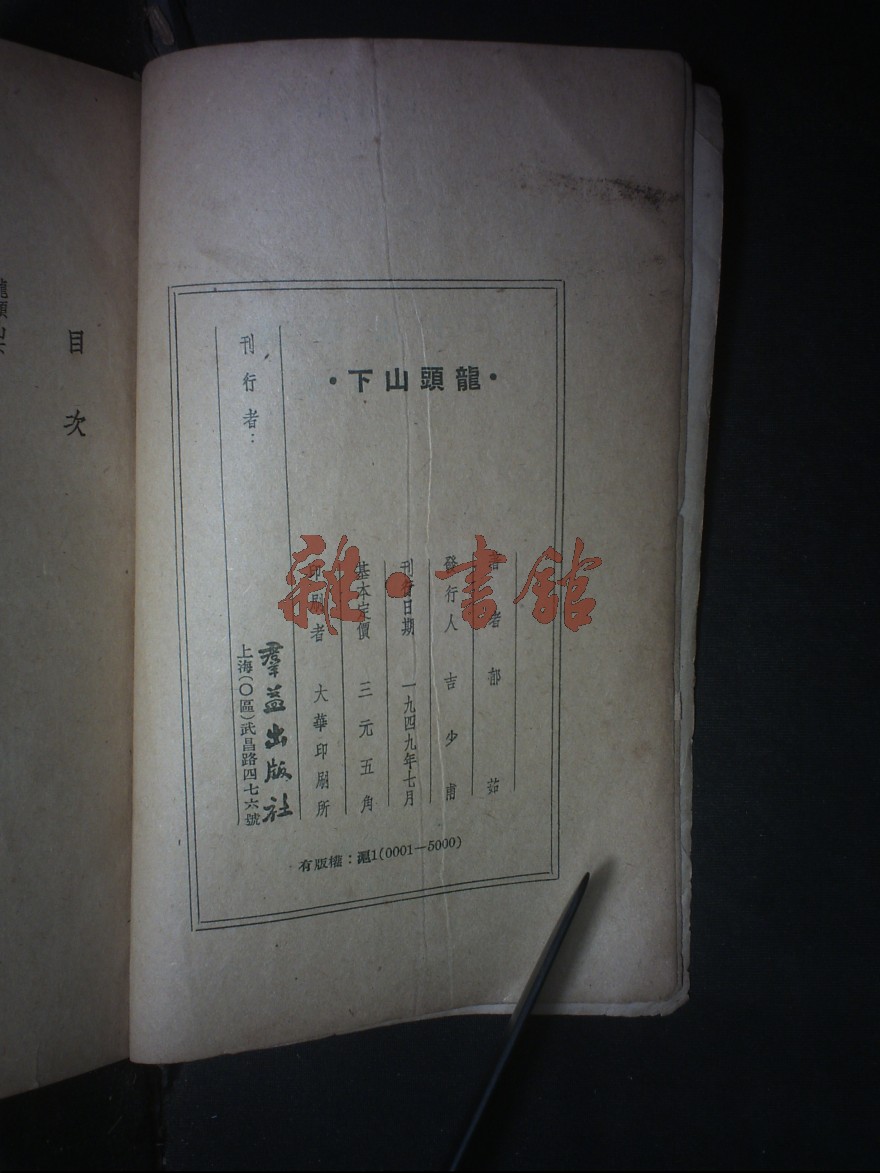 ·龍頭山下·
著者 郁茹
發行人 吉少甫
刊行日期 一九四九年七月
基本定價 三元五角
印刷者 大華印刷所
刊行者：
羣益出版社
上海(〇區)武昌路四七六號
有版權：滬1(0001—5000)
目次
龍頭山下
雜·書館